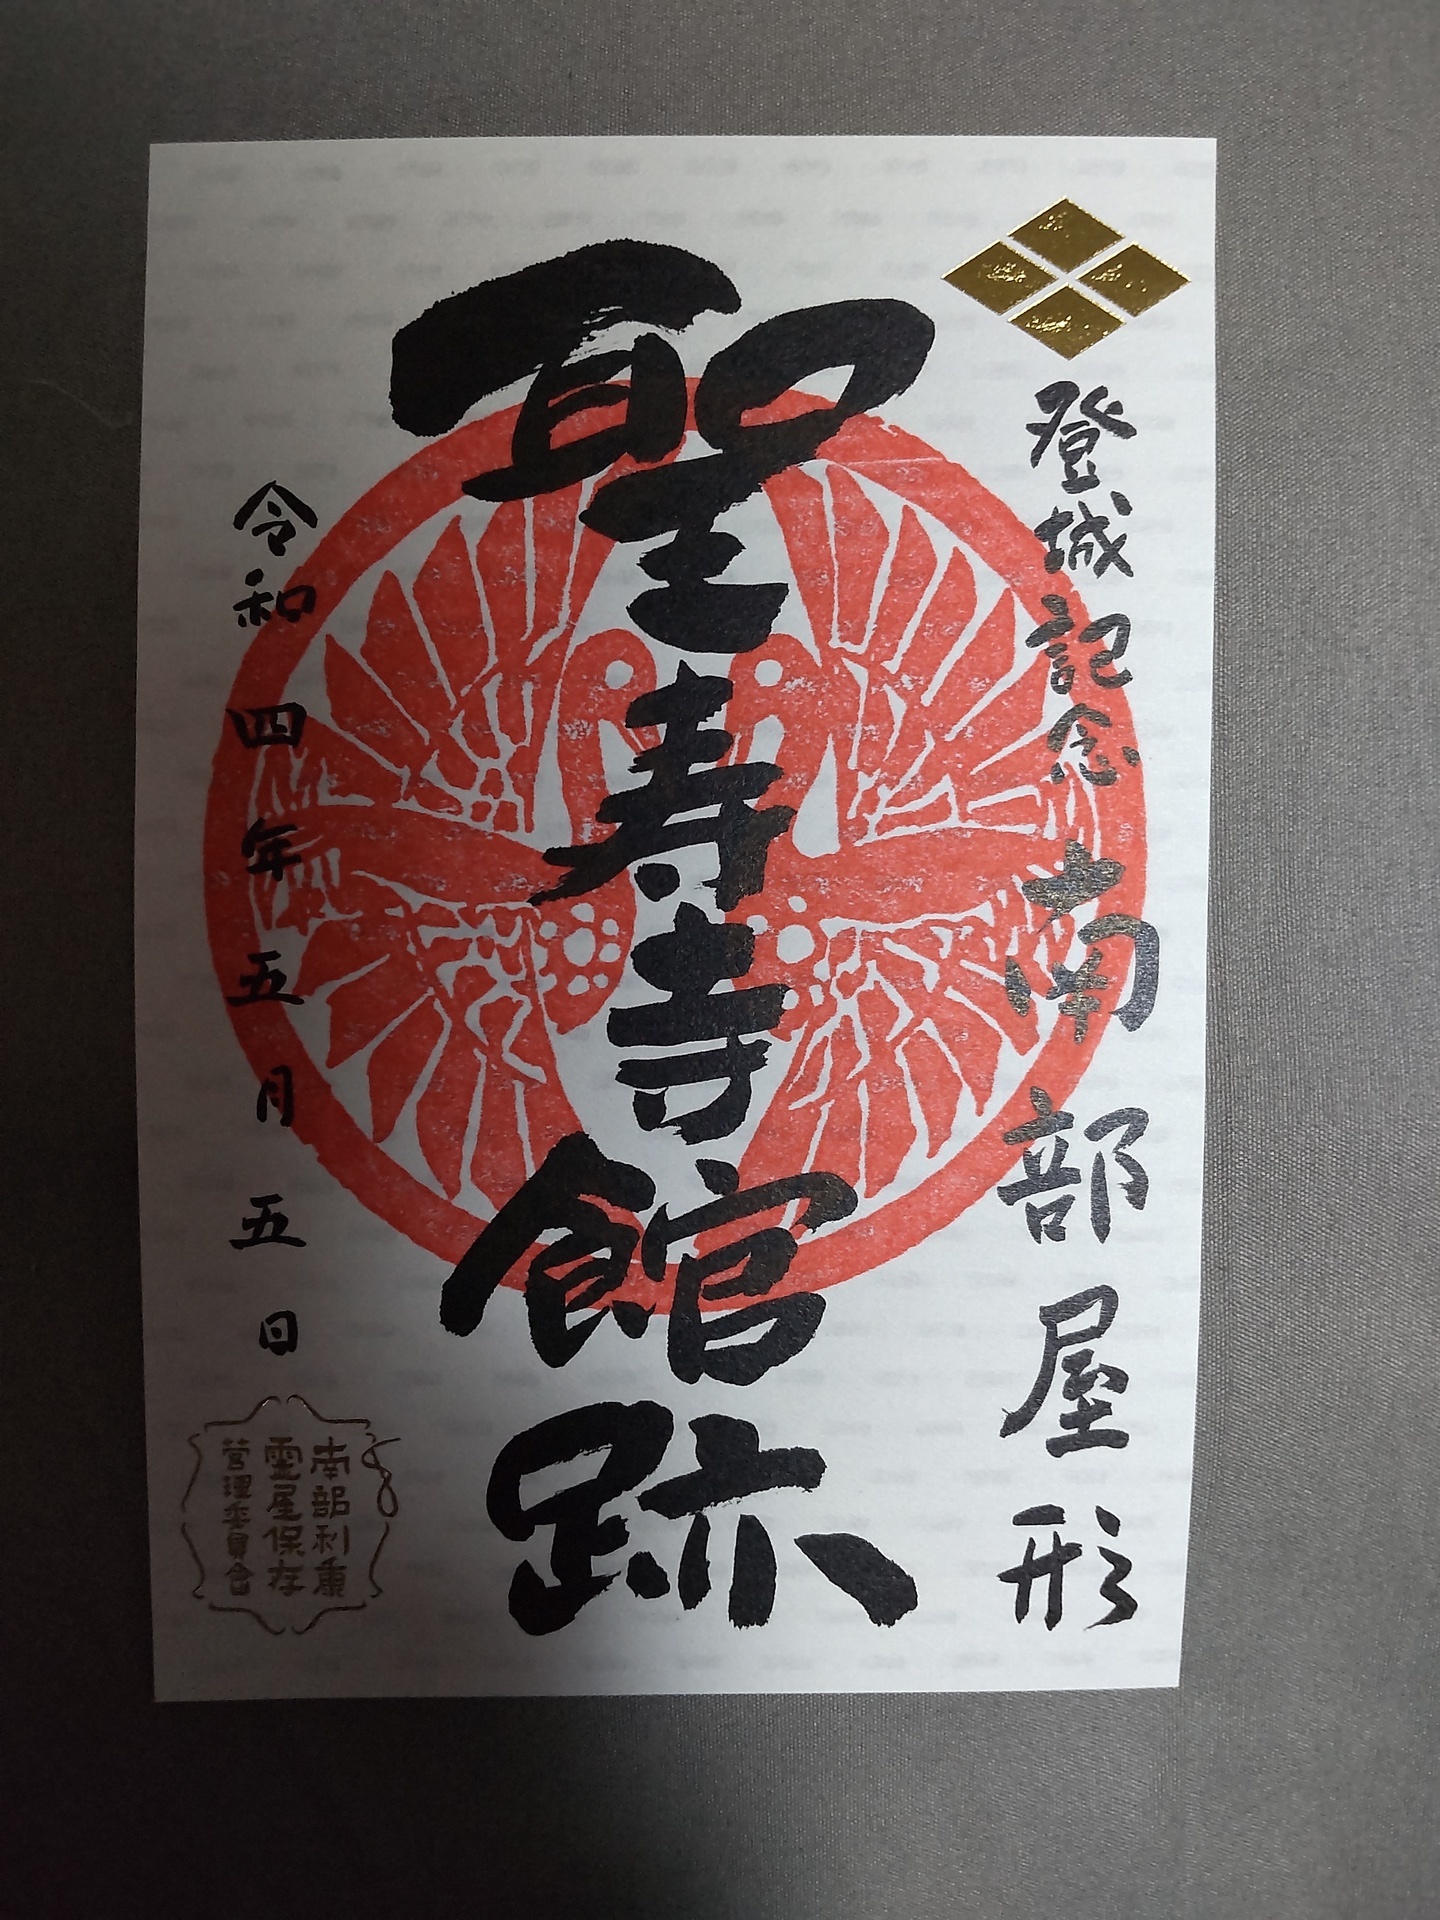 登城記念 南部屋形
聖寿寺館跡
令和四年五月五日
南部利康
霊屋保存
管理委員会